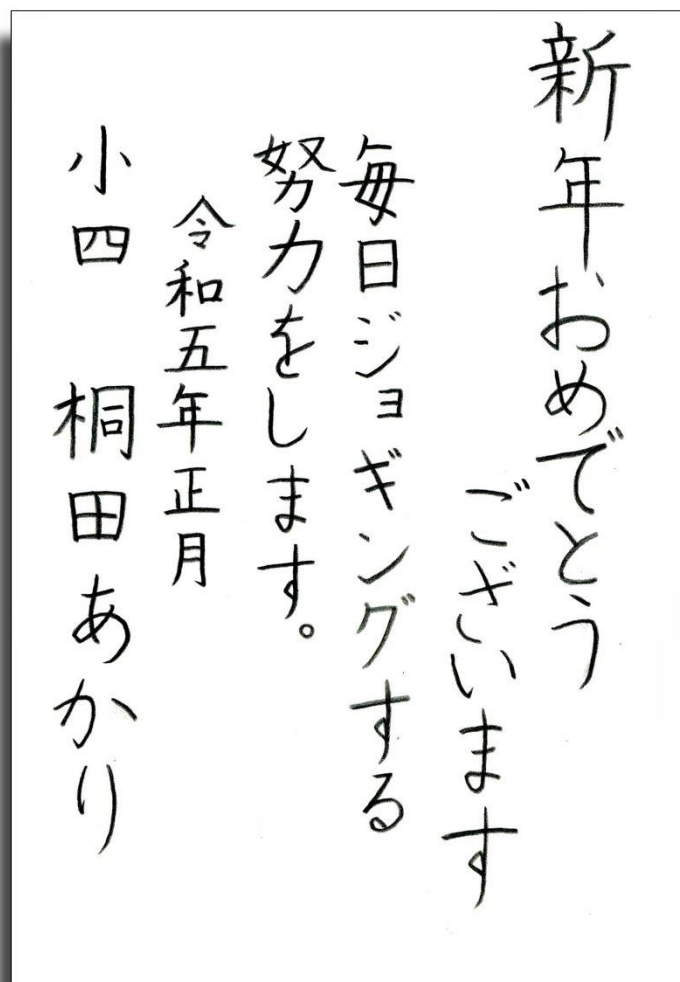 新年おめでとう
ございます
毎日ジョギングする
努力をします。
令和五年正月
小四 桐田あかり